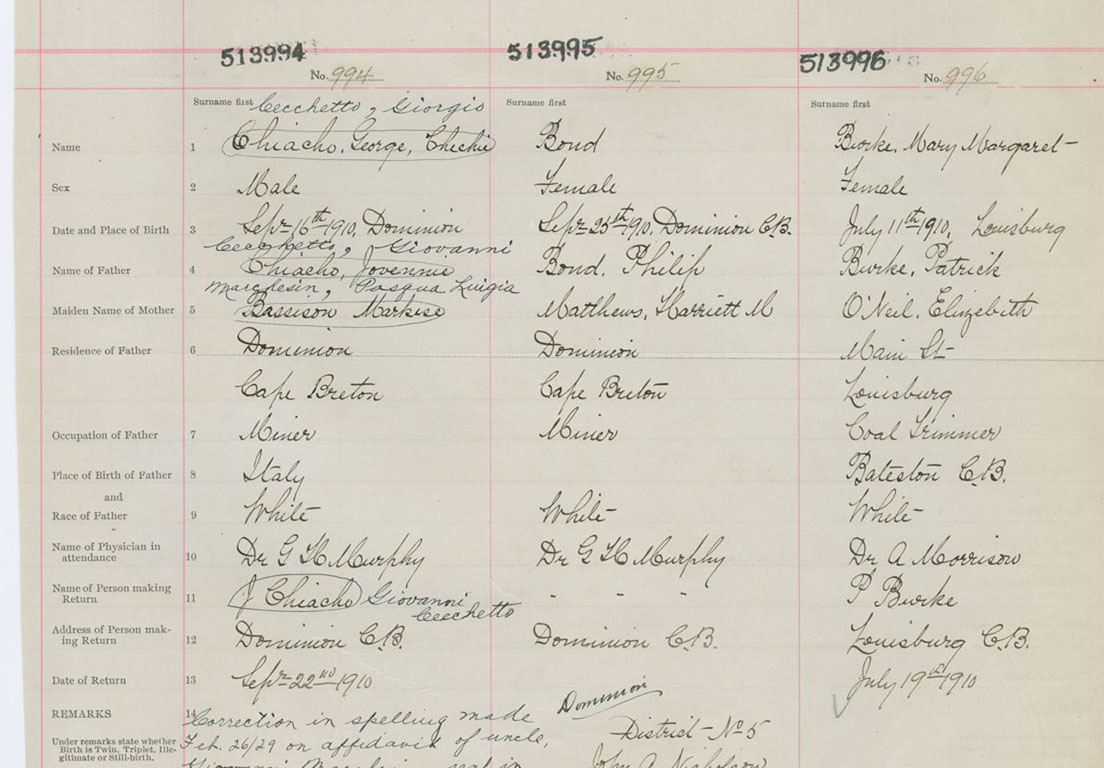 513994 513995 513996
No. 994 No. 995 No. 996
Surname first Cecchetto, Giorgio Surname first Surname first
Name 1 Chiacho, George, Chichie Bond Burke, Mary Margaret
Sex 2 Male Female Female
Date and Place of Birth 3 Sept 16th 1910, Dominion Sept 25th 1910, Dominion C.B. July 11th 1910, Louisburg
Cecchetto, Giovanni
Name of Father 4 Chiacho, Jovennie Bond, Philip Burke, Patrick
Marchesin, Pasqua Luigia
Maiden Name of Mother 5 Bassison Markise Matthews, Harriett M O'Neil, Elizabeth
Residence of Father 6 Dominion Dominion Main St
Cape Breton Cape Breton Louisburg
Occupation of Father 7 Miner Miner Coal Trimmer
Place of Birth of Father 8 Italy Bateston C.B.
and
Race of Father 9 White White White
Name of Physician in
attendance 10 Dr G H Murphy Dr G H Murphy Dr A Morrison
Name of Person making
Return 11 J Chiacho Giovanni " " " P Burke
Cecchetto
Address of Person mak-
ing Return 12 Dominion C.B. Dominion C.B. Louisburg C.B.
Date of Return 13 Sept 22nd 1910 July 19th 1910
Dominion
REMARKS 14 Correction in spelling made District No 5
Under remarks state whether
Birth is Twin, Triplet, Ille-
gitimate or Still-birth.
Feb. 26/29 on affidavit of uncle,
Giovanni John A Nicholson